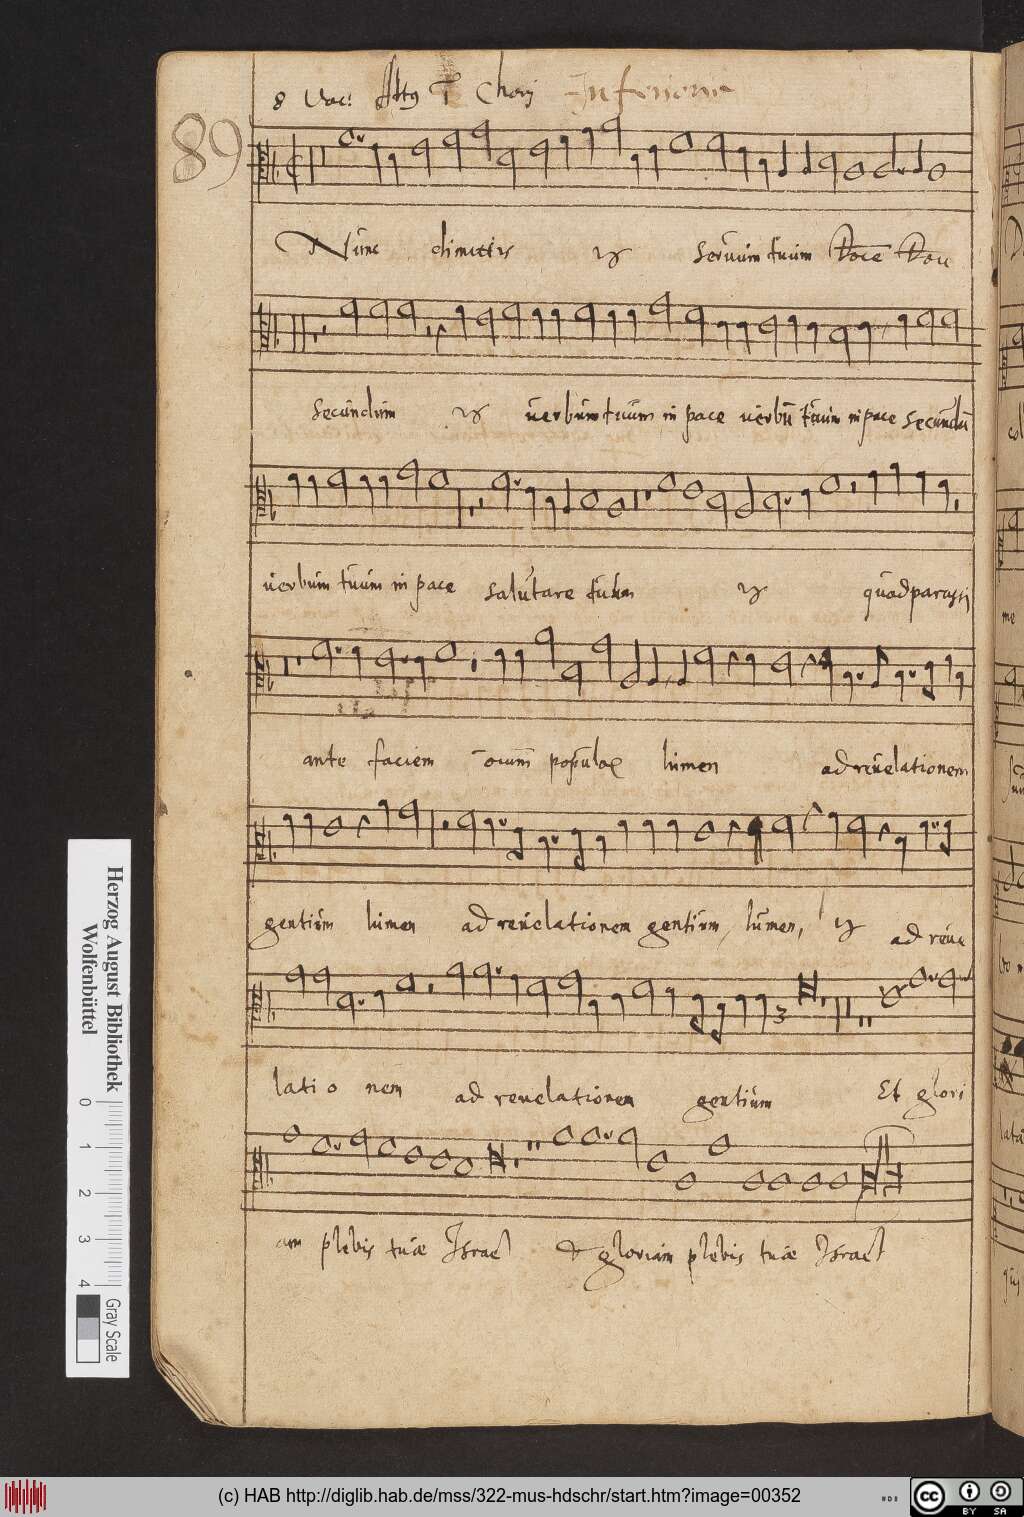 8 Voc: Altus I Chori Inferioris
89
Nunc dimittis ij servum tuum Dñe Dñe
Secundum ij verbum tuum in pace verbū tuum in pace Secundū
verbum tuum in pace Salutare tuum ij quod parasti
ante faciem oium populor lumen ad revelationem
gentium lumen ad revelationem gentium, lumen, ij ad reve
lati o nem ad revelationem gentium Et glori
am plebis tuæ Israel & gloriam plebis tuæ Israel
Herzog August Bibliothek
Wolfenbüttel
0 1 2 3 4
Gray Scale
(c) HAB http://diglib.hab.de/mss/322-mus-hdschr/start.htm?image=00352
cc BY SA